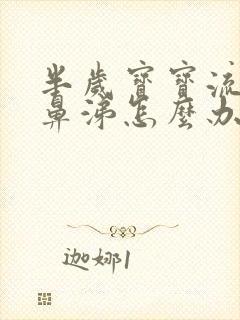 半歲寶寶流
鼻涕怎麼办
迦娜1